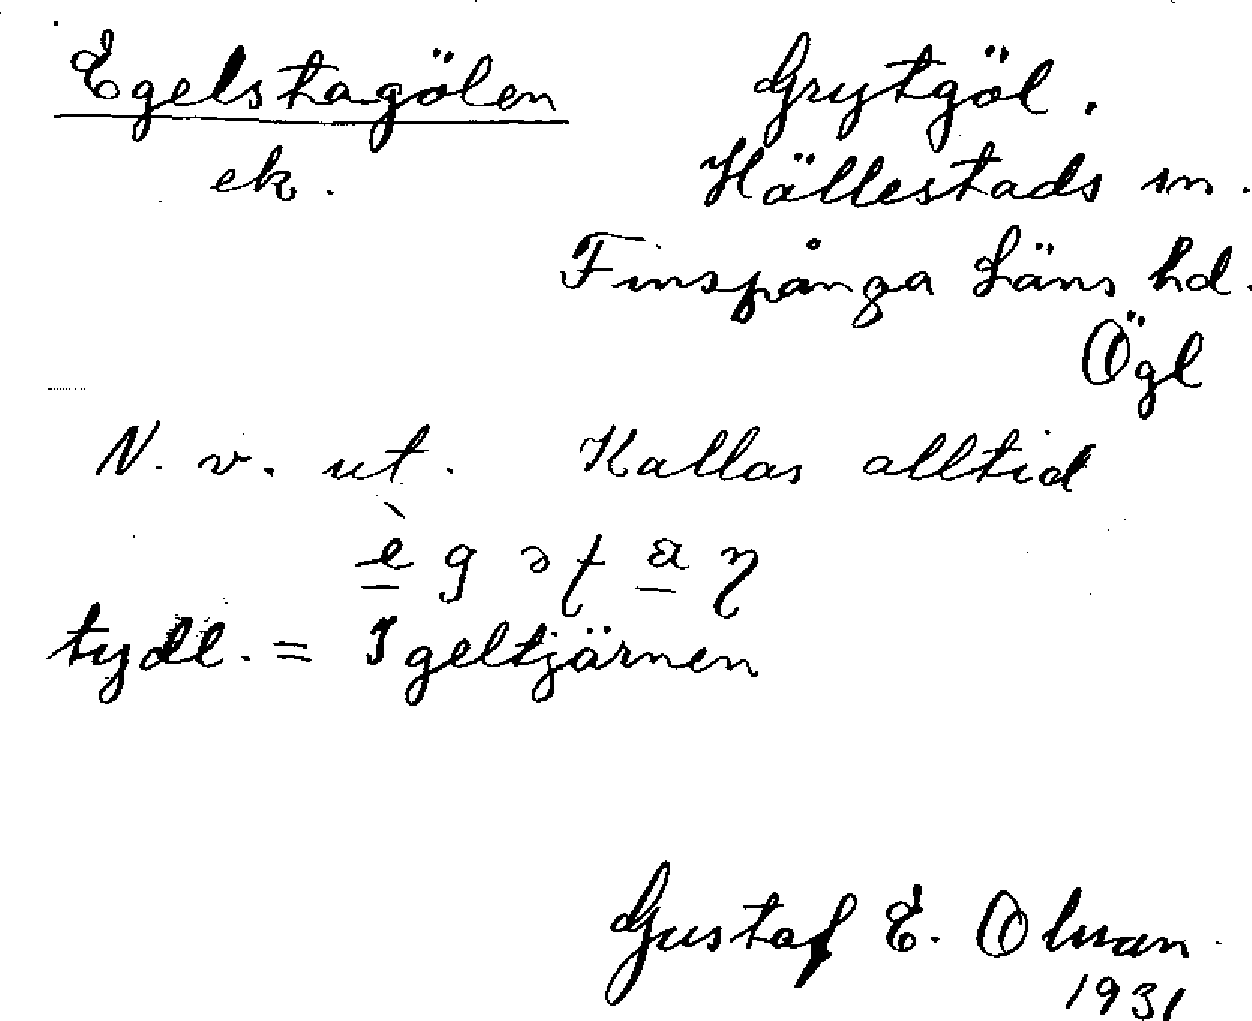 Egelstagölen Grytgöl.
ek. Hällestads sn.
Finspånga Läns hd.
Ögl
N. v. ut. Kallas alltid
tydl. = Igeltjärnen
Gustaf E. Olman
1931